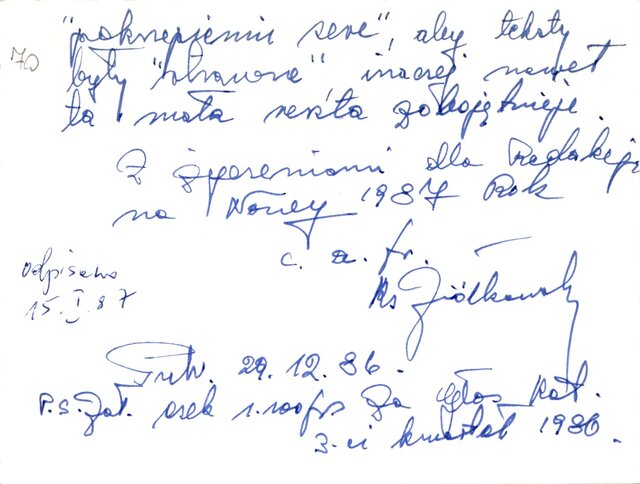 70
"pokrzepieniu serc", aby teksty
były "strawne", inaczej nawet
ta mała reszta zobojętnieje.
Z życzeniami dla Redakcji
na Nowy 1987 Rok
c. a. fr.
Ks Ziółkowski
odpisano
15.I.87
29.12.86.
P.S. Zał. czek za Głos Kat.
3-ci kwartał 1986.